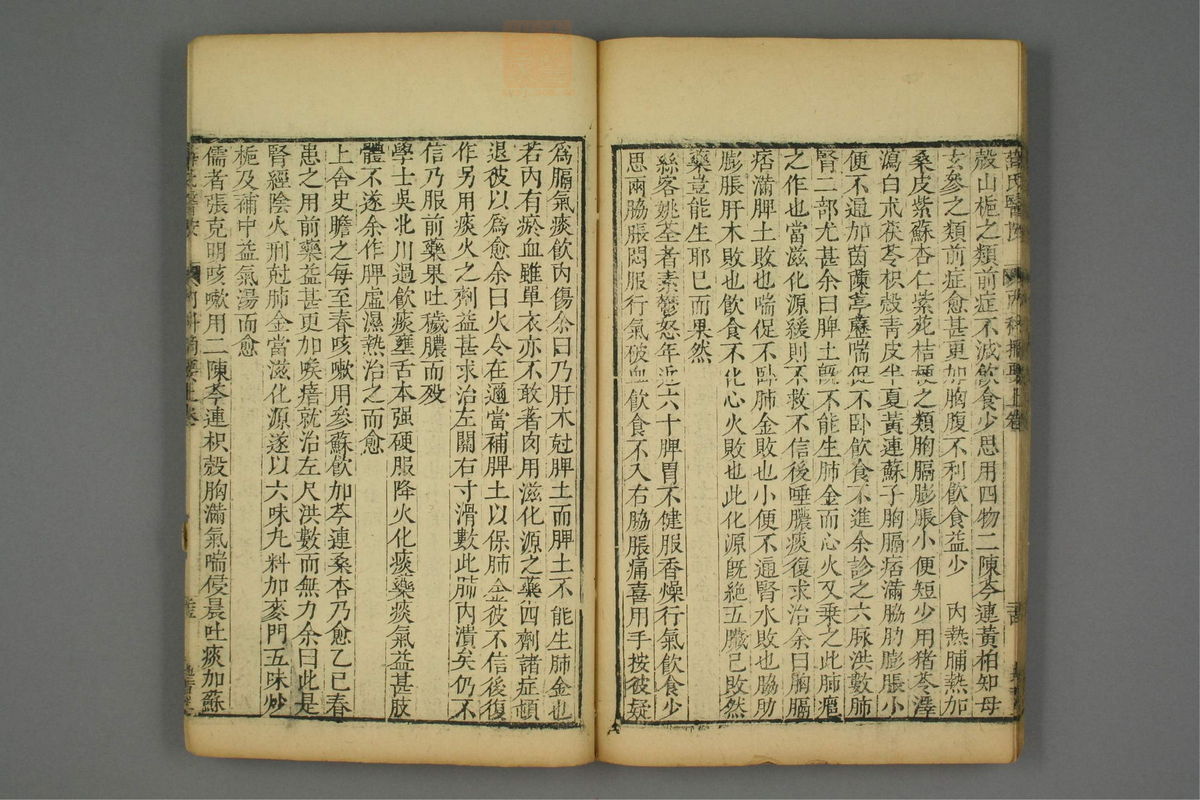 薛氏醫按 內科摘要上卷
殼山梔之類前症不減飲食少思用四物二陳芩連黃柏知母
玄參之類前症愈甚更加胸腹不利飲食益少 內熱晡熱加
桑皮紫蘇杏仁紫菀桔梗之類胸膈膨脹小便短少用猪苓澤
瀉白朮茯苓枳殼青皮半夏黃連蘇子胸膈痞滿脇肋膨脹小
便不通加茵蔯葶藶喘促不卧飲食不進余診之六脉洪數肺
腎二部尤甚余曰脾土旣不能生肺金而心火又乘之此肺癰
之作也當滋化源緩則不救不信後唾膿痰復求治余曰胸膈
痞滿脾土敗也喘促不卧肺金敗也小便不通腎水敗也脇肋
膨脹肝木敗也飲食不化心火敗也此化源旣絶五臟已敗然
藥豈能生耶已而果然
絲客姚荃者素鬱怒年近六十脾胃不健服香燥行氣飲食少
思兩脇脹悶服行氣破血飲食不入右脇脹痛喜用手按彼疑
爲膈氣痰飲內傷余曰乃肝木尅脾土而脾土不能生肺金也
若內有瘀血雖單衣亦不敢著肉用滋化源之藥四劑諸症頓
退彼以爲愈余曰火令在邇當補脾土以保肺金彼不信後復
作另用痰火之劑益甚求治左關右寸滑數此肺內潰矣仍不
信乃服前藥果吐穢膿而歿
學士吳北川過飲痰壅舌本强硬服降火化痰藥痰氣益甚肢
體不遂余作脾虛濕熱治之而愈
上舍史瞻之每至春咳嗽用參蘇飲加芩連桑杏乃愈乙巳春
患之用前藥益甚更加喉瘖就治左尺洪數而無力余曰此是
腎經陰火刑尅肺金當滋化源遂以六味丸料加麥門五味炒
梔及補中益氣湯而愈
儒者張克明咳嗽用二陳芩連枳殼胸滿氣喘侵晨吐痰加蘇